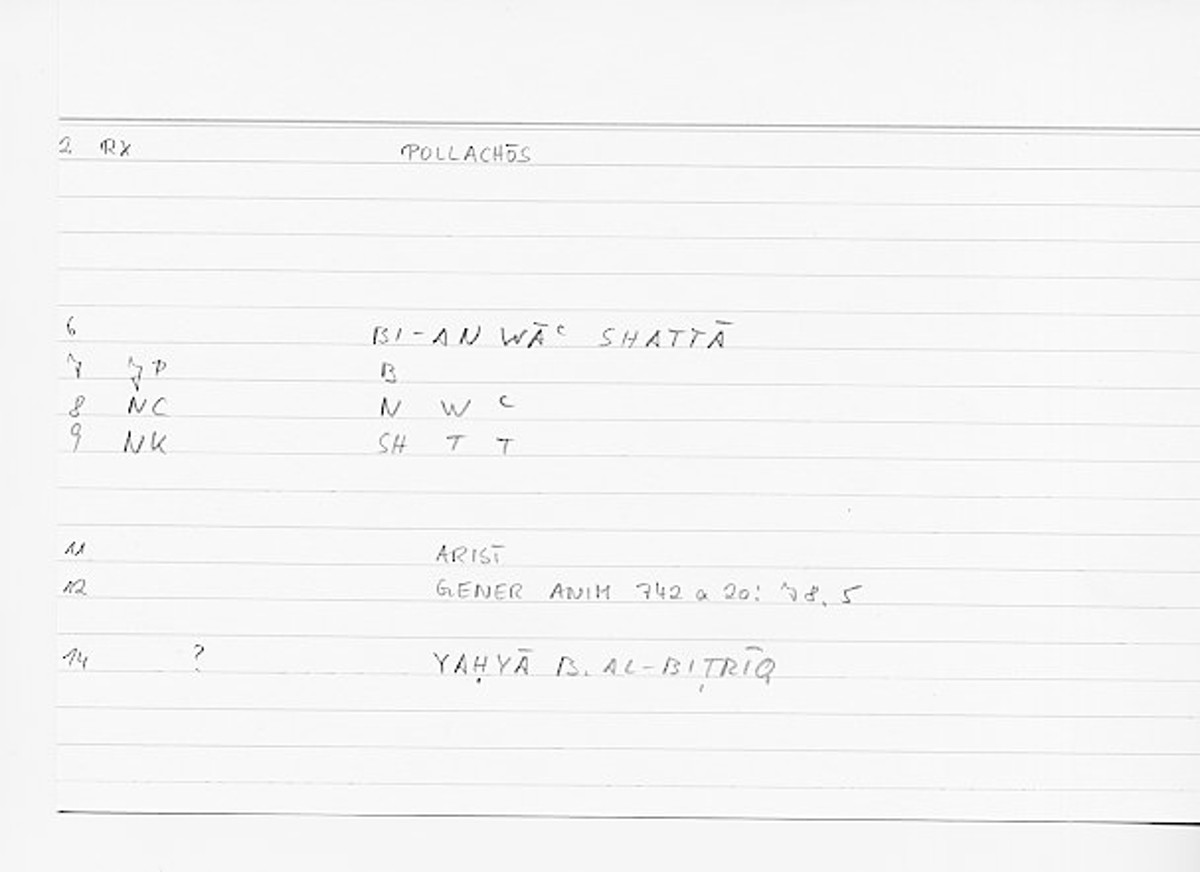 2 RX POLLACHŌS
6 BI-ANWĀᶜ SHATTĀ
7 JP B
8 NC N W ᶜ
9 NK SH T T
11 ARIST
12 GENER ANIM 742 a 20: 78, 5
14 ? YAḤYĀ B. AL-BIṬRĪQ